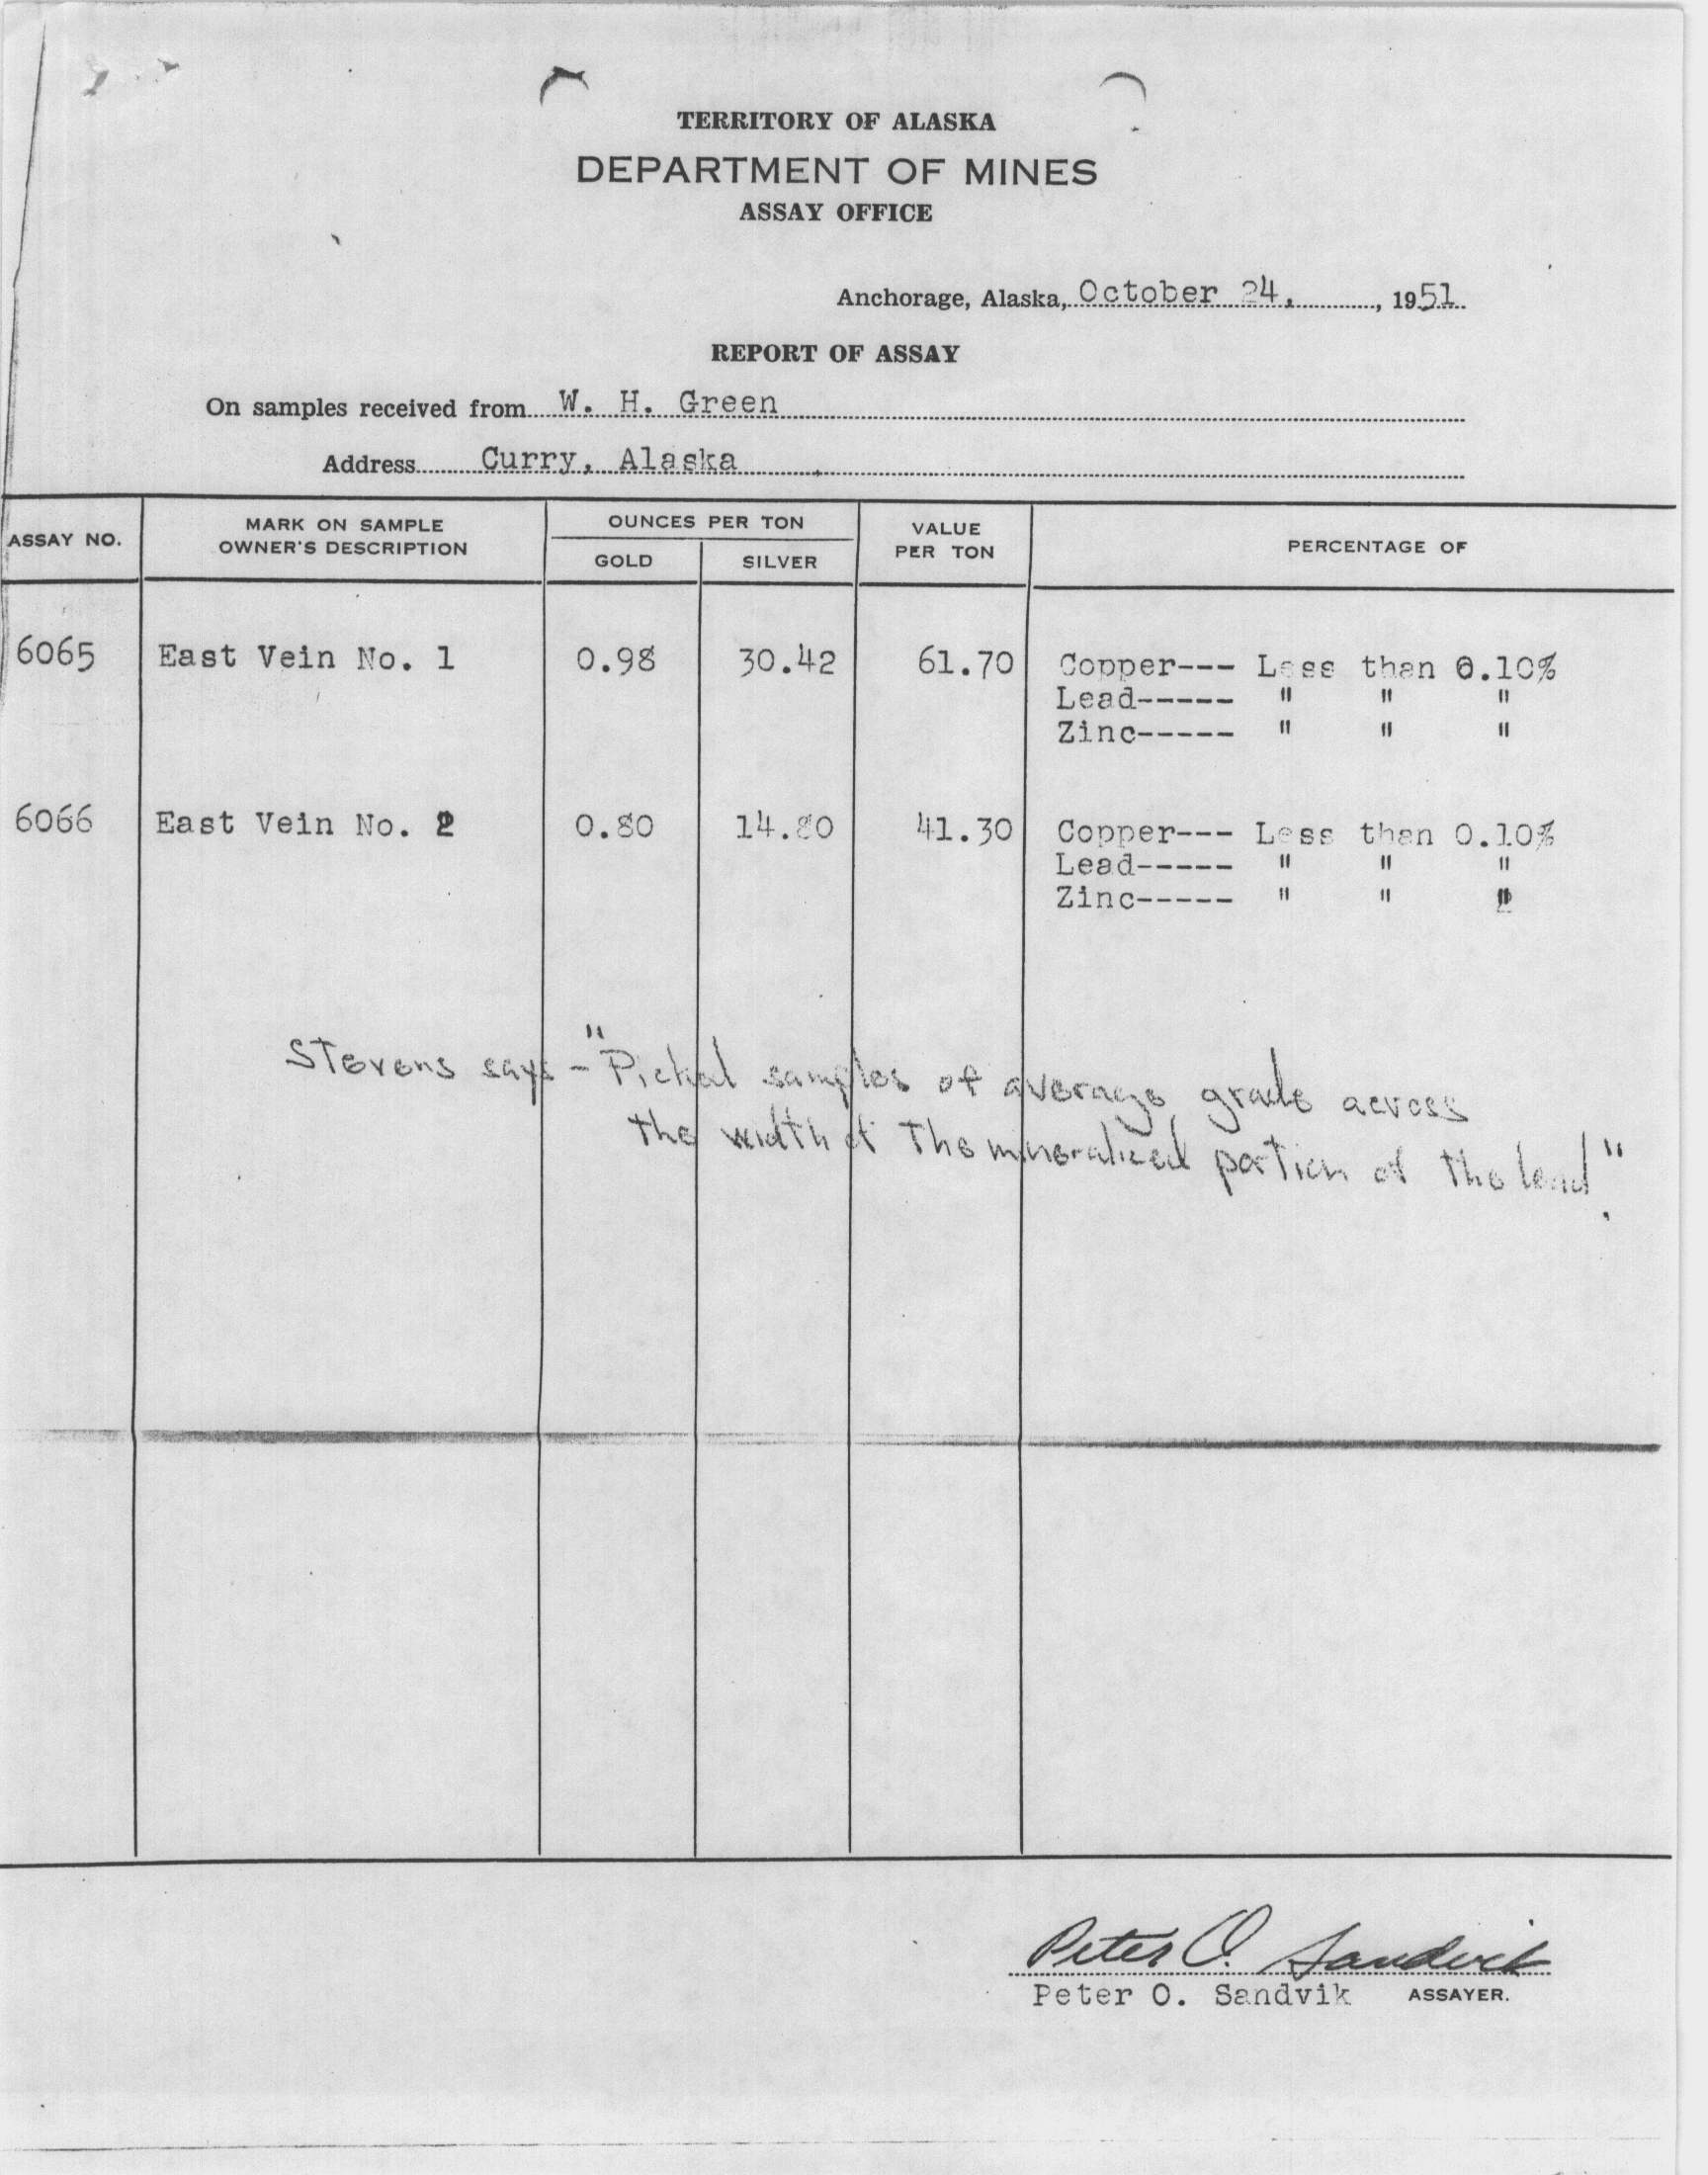 TERRITORY OF ALASKA
DEPARTMENT OF MINES
ASSAY OFFICE
Anchorage, Alaska, October 24, , 1951
REPORT OF ASSAY
On samples received from W. H. Green
Address Curry, Alaska
ASSAY NO. MARK ON SAMPLE OWNER'S DESCRIPTION OUNCES PER TON GOLD SILVER VALUE PER TON PERCENTAGE OF
6065 East Vein No. 1 0.98 30.42 61.70 Copper--- Less than 0.10%
Lead----- " " "
Zinc----- " " "
6066 East Vein No. 2 0.80 14.80 41.30 Copper--- Less than 0.10%
Lead----- " " "
Zinc----- " " "
Stevens says - "Picked samples of average grade across
the width of the mineralized portion of the lead".
Peter O. Sandvik
Peter O. Sandvik ASSAYER.